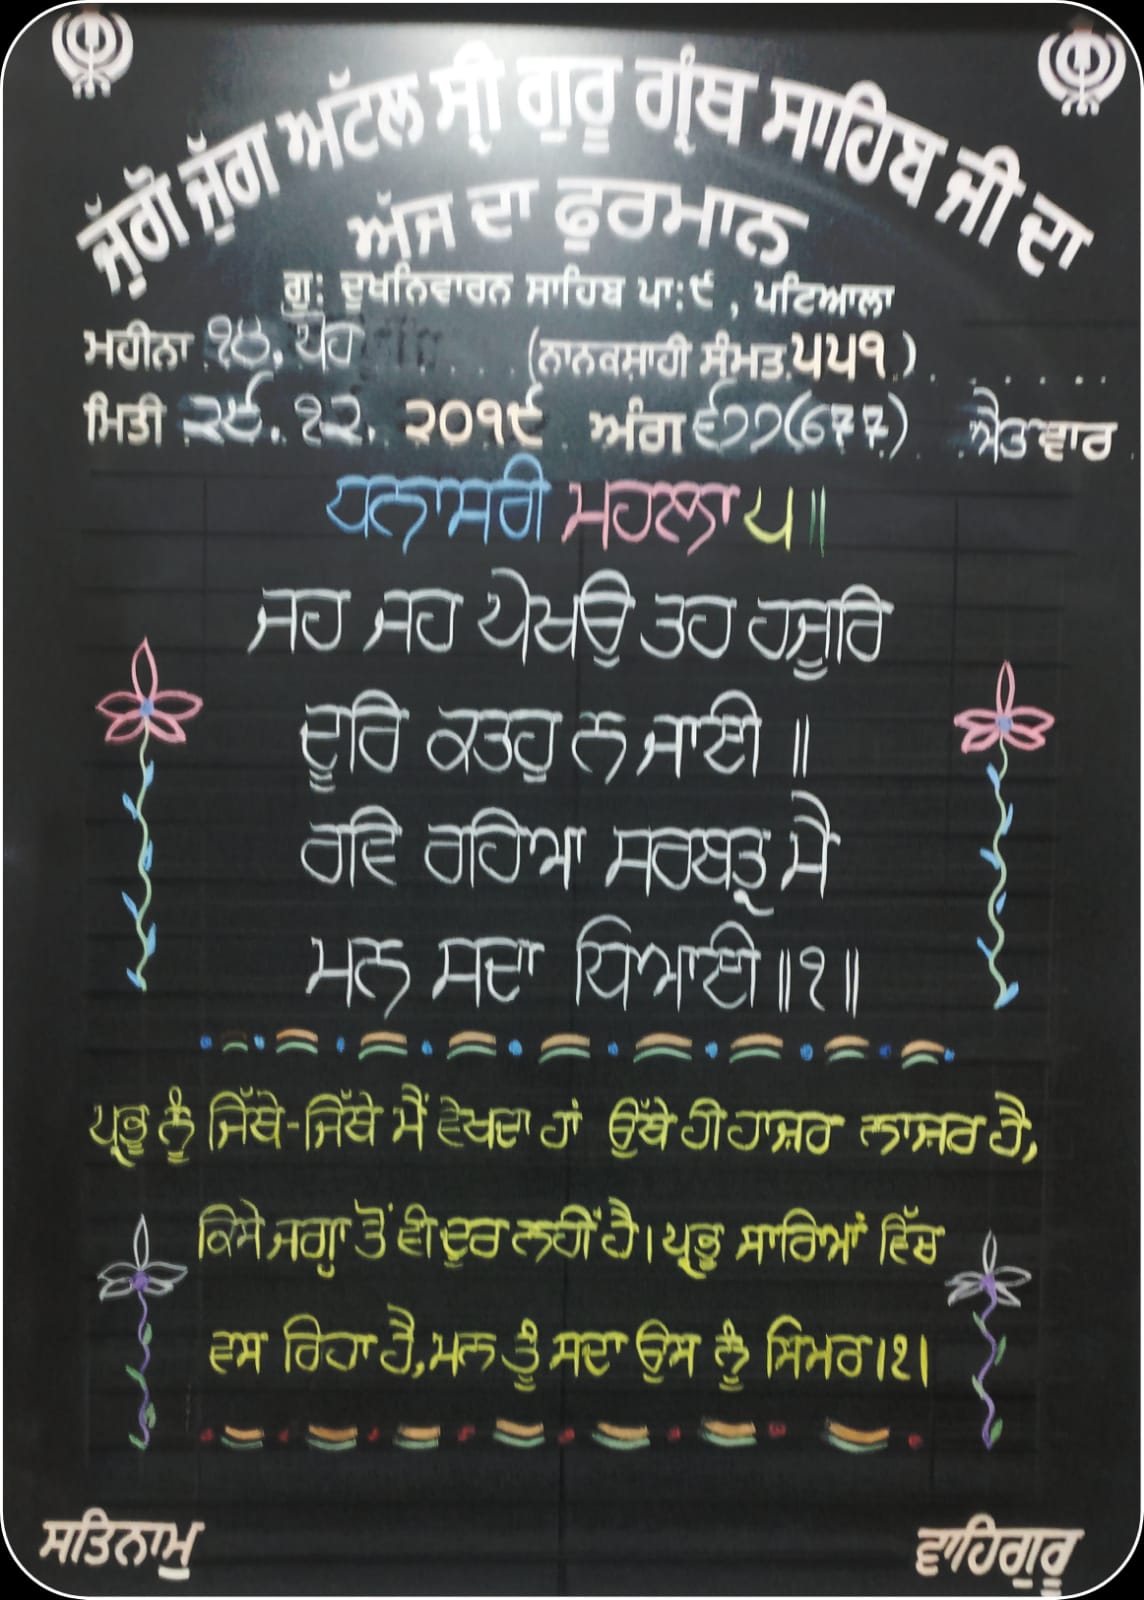 ਜੁੱਗੋ ਜੁੱਗ ਅਟੱਲ ਸ੍ਰੀ ਗੁਰੂ ਗ੍ਰੰਥ ਸਾਹਿਬ ਜੀ ਦਾ
ਅੱਜ ਦਾ ਫੁਰਮਾਨ
ਗੁ: ਦੂਖਨਿਵਾਰਨ ਸਾਹਿਬ ਪਾ:੯ , ਪਟਿਆਲਾ
ਮਹੀਨਾ ੧੪. ਪੋਹ (ਨਾਨਕਸ਼ਾਹੀ ਸੰਮਤ ੫੫੧)
ਮਿਤੀ ੨੯. ੧੨. ੨੦੧੯ ਅੰਗ ੬੭੭(677) ਐਤਵਾਰ
ਧਨਾਸਰੀ ਮਹਲਾ ੫॥
ਜਹ ਜਹ ਪੇਖਉ ਤਹ ਹਜੂਰਿ
ਦੂਰਿ ਕਤਹੁ ਨ ਜਾਈ ॥
ਰਵਿ ਰਹਿਆ ਸਰਬਤ੍ਰ ਮੈ
ਮਨ ਸਦਾ ਧਿਆਈ ॥੧॥
ਪ੍ਰਭੂ ਨੂੰ ਜਿੱਥੇ-ਜਿੱਥੇ ਮੈਂ ਵੇਖਦਾ ਹਾਂ ਉੱਥੇ ਹੀ ਹਾਜ਼ਰ ਨਾਜ਼ਰ ਹੈ,
ਕਿਸੇ ਜਗ੍ਹਾ ਤੋਂ ਵੀ ਦੂਰ ਨਹੀਂ ਹੈ। ਪ੍ਰਭੂ ਸਾਰਿਆਂ ਵਿੱਚ
ਵਸ ਰਿਹਾ ਹੈ, ਮਨ ਤੂੰ ਸਦਾ ਉਸ ਨੂੰ ਸਿਮਰ।੧।
ਸਤਿਨਾਮੁ ਵਾਹਿਗੁਰੂ